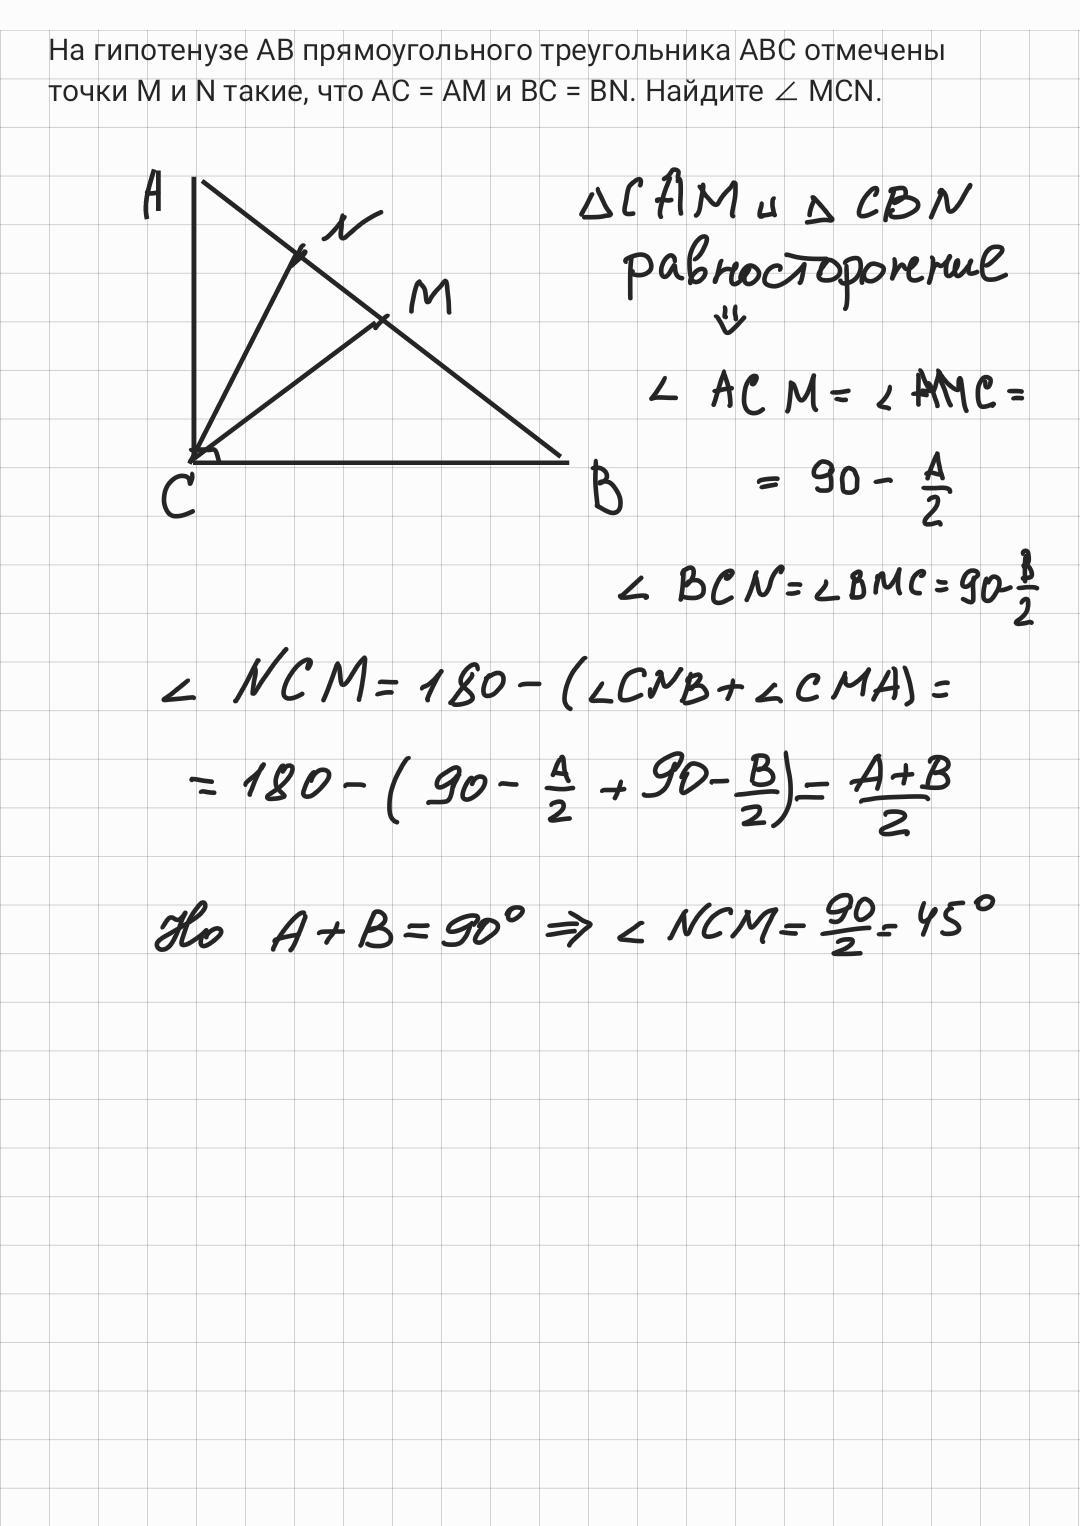 На гипотенузе AB прямоугольного треугольника ABC отмечены
точки M и N такие, что AC = AM и BC = BN. Найдите ∠ MCN.
A
N
M
C
B
△ CAM и △ CBN
равносторонение
⇓
∠ ACM = ∠ AMC =
= 90 - A/2
∠ BCN = ∠ BMC = 90 - B/2
∠ NCM = 180 - (∠CNB + ∠CMA) =
= 180 - (90 - A/2 + 90 - B/2) = A+B/2
Но A + B = 90° ⇒ ∠ NCM = 90/2 = 45°